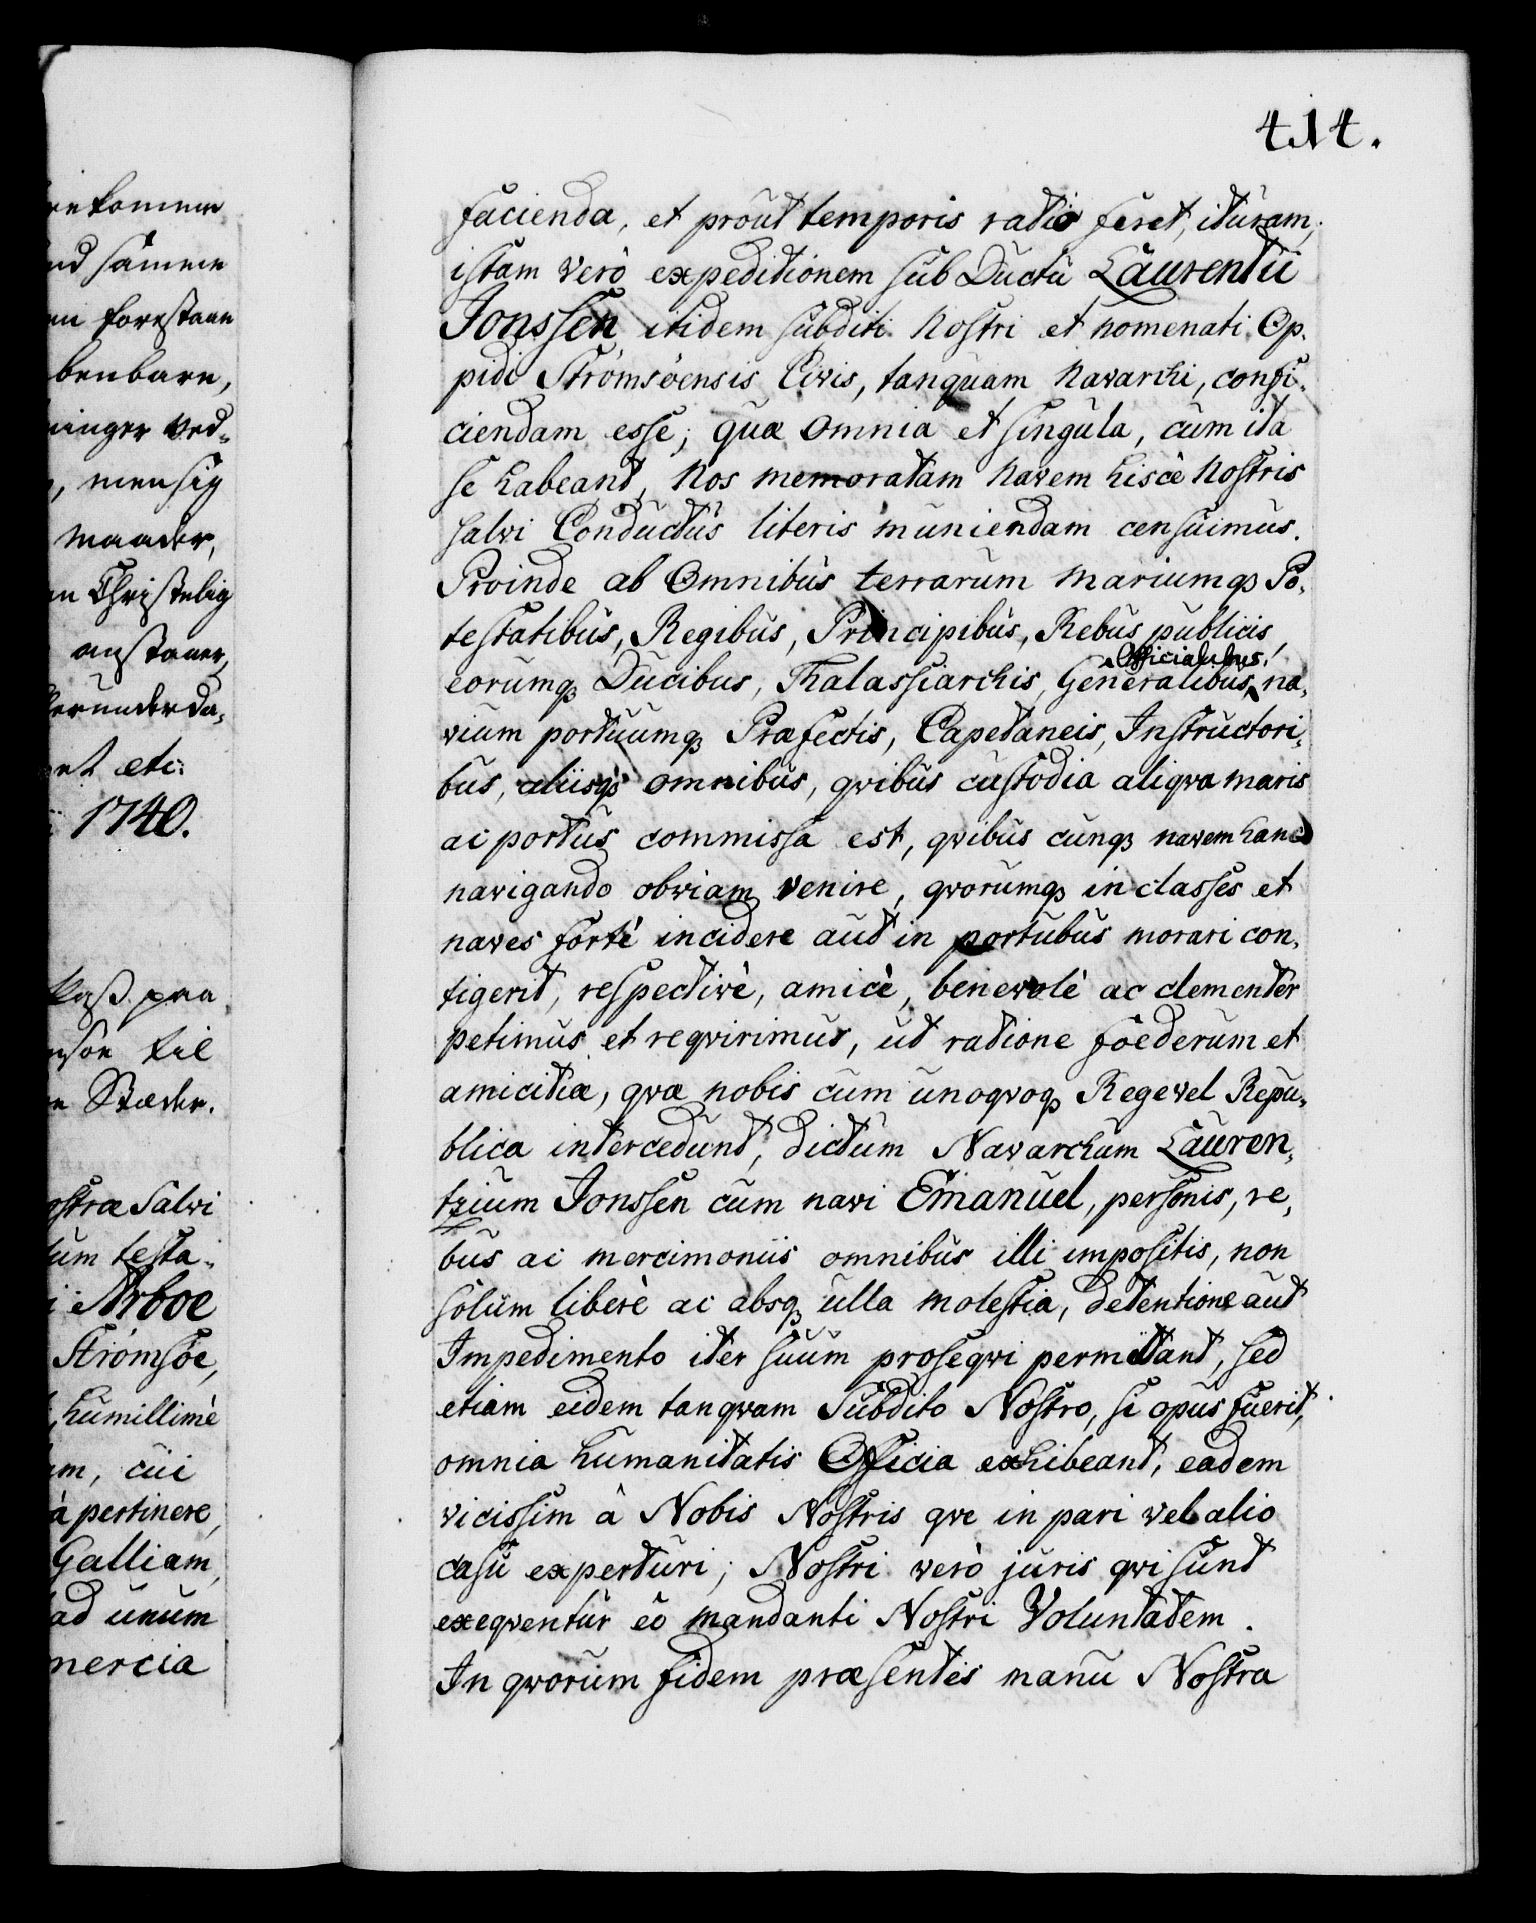 414.
facienda, et proùt temporis ratio feret, itùram,
istam verò expeditionem sub Ductù Laurentii
Jonssen itidem subditi Nostri et nomenati Op-
pidi Strömsöensis Civis, tanquam Navarchi, confi-
ciendam esse; quæ omnia et singula, cùm ita
se habeant, Nos memoratam Navem hisce Nostris
salvi Conductùs literis muniendam censuimus.
Proinde ab Omnibùs terrarum Mariumq; Po-
testatibùs, Regibus, Principibùs, Rebus publicis,
Officialibus,
eorumq; Ducibus, Thalassiarchis, Generalibus, na-
vium portuumq; Præfectis, Capetaneis, Instructori-
bus, aliisq; omnibus, qvibus custodia aliqva maris
ac portùs commissa est, qvibùs cunq; navem hanc
navigando obviam venire, qvorumq; in classes et
naves fortè incidere aut in portubus morari con-
tigerit, respectivè, amicè, benevolè ac clementer
petimus et reqvirimus, ut ratione foederum et
amicitiæ, qvæ nobis cum unoqvoq; Rege vel Repu-
blica intercedunt, dictum Navarchum Lauren-
tzium Jonssen cum navi Emanuel, personis, re-
bus ac mercimoniis omnibus illi impositis, non
solùm liberè ac absq; ulla molestia, detentione aut
Impedimento iter suum proseqvi permittant, sed
etiam eidem tanqvam Subdito Nostro, si opus fuerit,
omnia humanitatis Officia exhibeant, eadem
vicissim à Nobis Nostris qve in pari vel alio
casu experturi; Nostri verò juris qvi sunt
exeqventùr eò mandanti Nostri Voluntatem.
In qvorùm fidem præsentes manu Nostra
ekomme
ud samme
forestaae
benbare,
ninger ved-
mensig
maader,
en Christelig
anstaaer,
herunder da-
etc:
1740.
Pass paa
til
Stæder.
ostræ Salvi
tum testa-
Arboe
Strömsöe,
humillimè
am, cùi
à pertinere,
Galliam,
ad unum
mercia